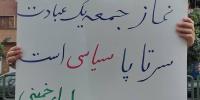 نماز جمعه یک عبادت
سر تا پا سیاسی است
امام خمینی